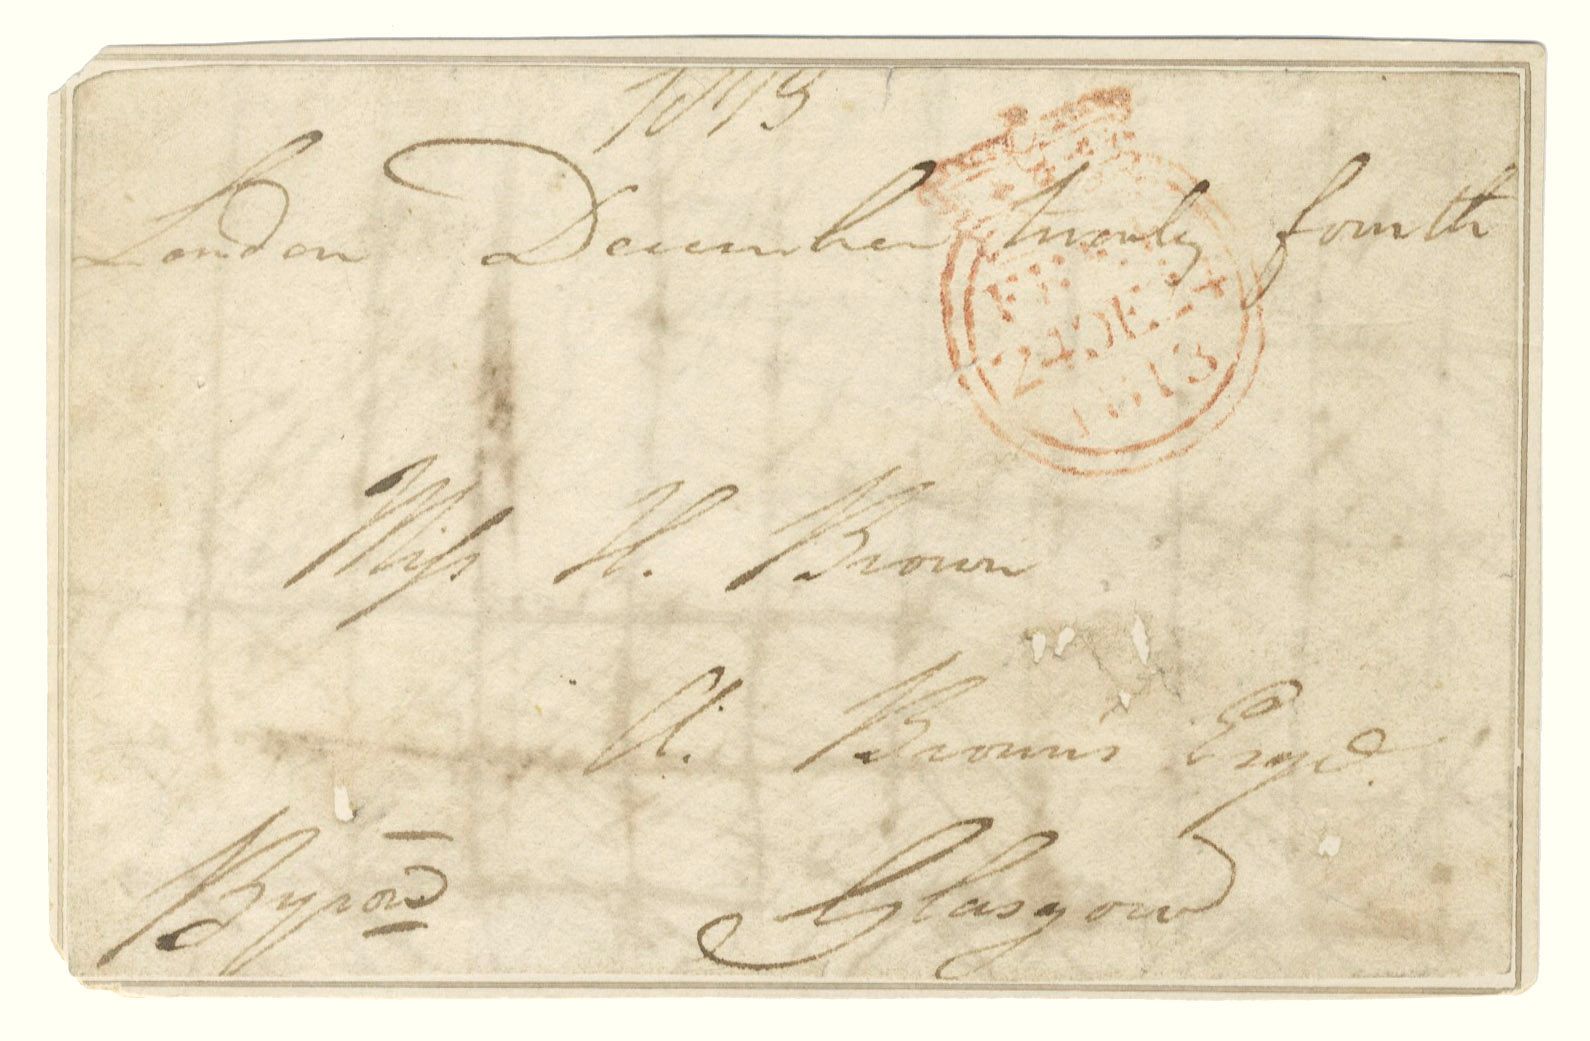 1813
London December twenty fourth
FREE
24 DE 24
1813
Miss H. Brown
A. Brown's Esqre.
Byron
Glasgow